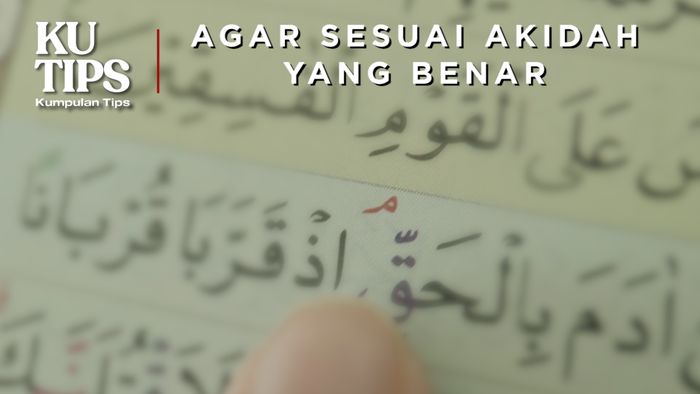 KU
TIPS
Kumpulan Tips
AGAR SESUAI AKIDAH
YANG BENAR
عَلَى الْقَوْمِ الْفٰسِقِيْنَ
اٰدَمَ بِالْحَقِّۘ اِذْ قَرَّبَا قُرْبَانًا